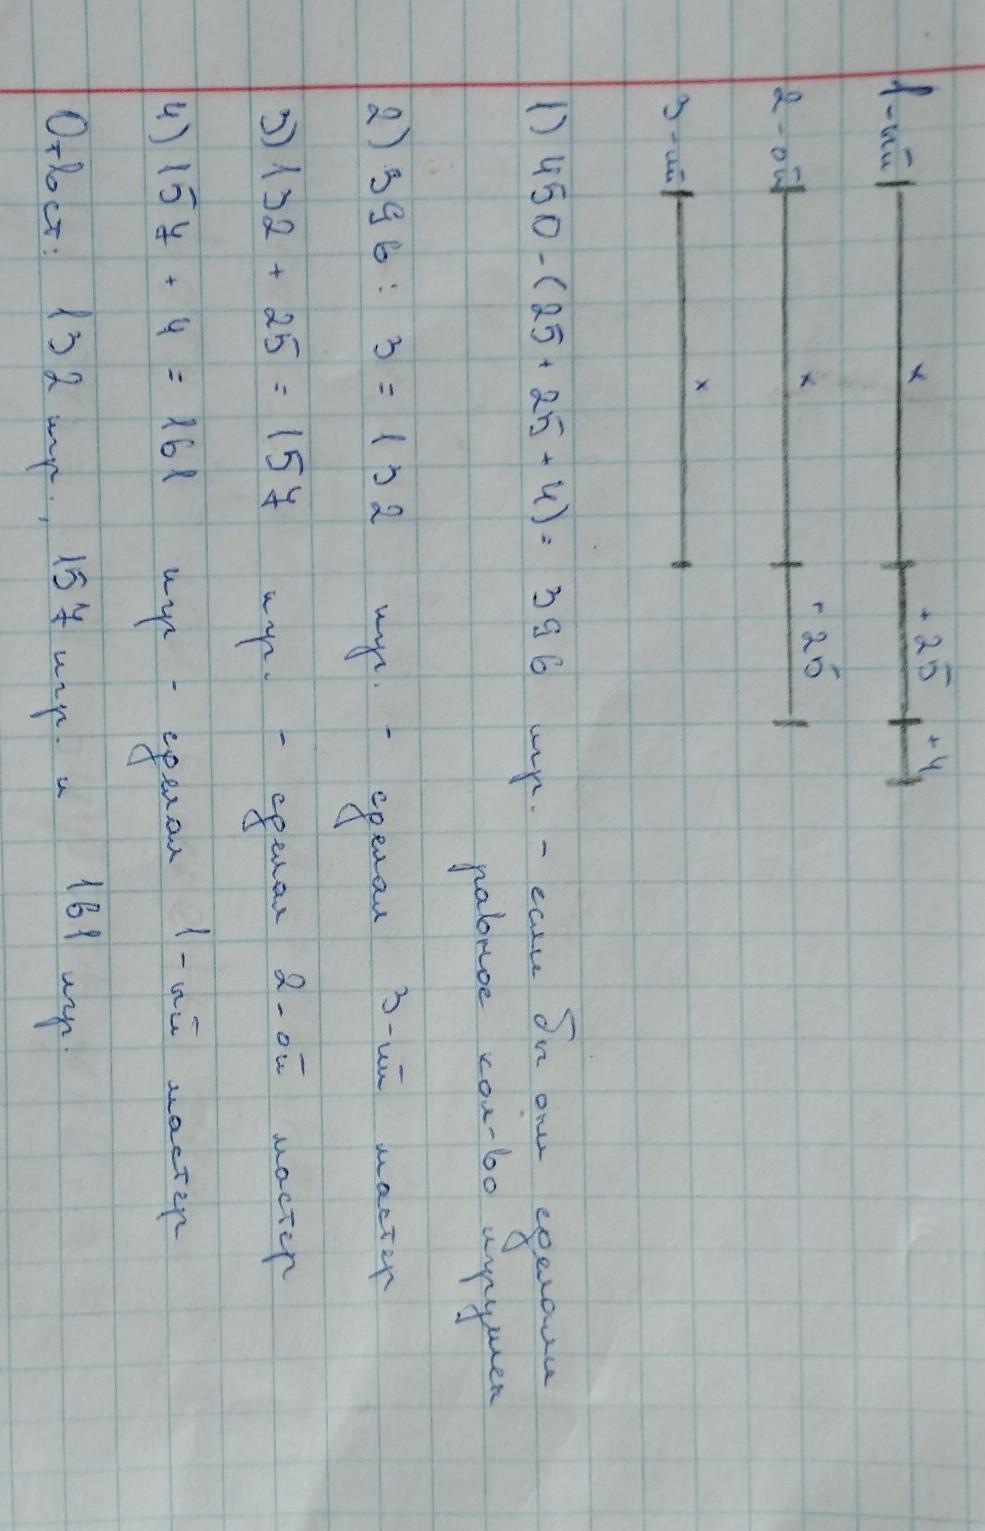 1-ый x +25 +4
2-ой x +25
3-ий x
1) 450 - (25 + 25 + 4) = 396 игр. - если бы они сделали
равное кол-во игрушек
2) 396 : 3 = 132 игр. - сделал 3-ий мастер
3) 132 + 25 = 157 игр. - сделал 2-ой мастер
4) 157 + 4 = 161 игр - сделал 1-ый мастер
Ответ: 132 игр., 157 игр. и 161 игр.